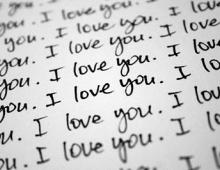 you. I love
you. I love you. I love
you. I love you. I love
you. I love you. I love
you. I love you. I
you. I love you. I
you. I love you. I
I love you.